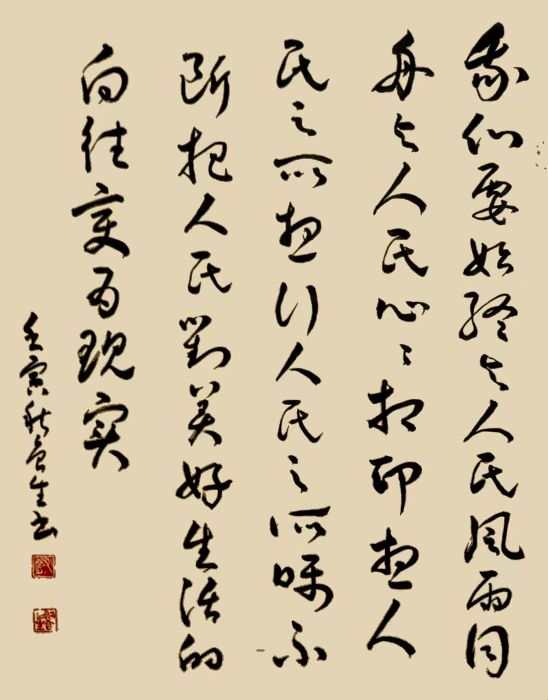 我们要始终与人民风雨同
舟与人民心〻相印想人
民之所想行人民之所嘱不
断把人民對美好生活的
向往变为现实
壬寅秋生书